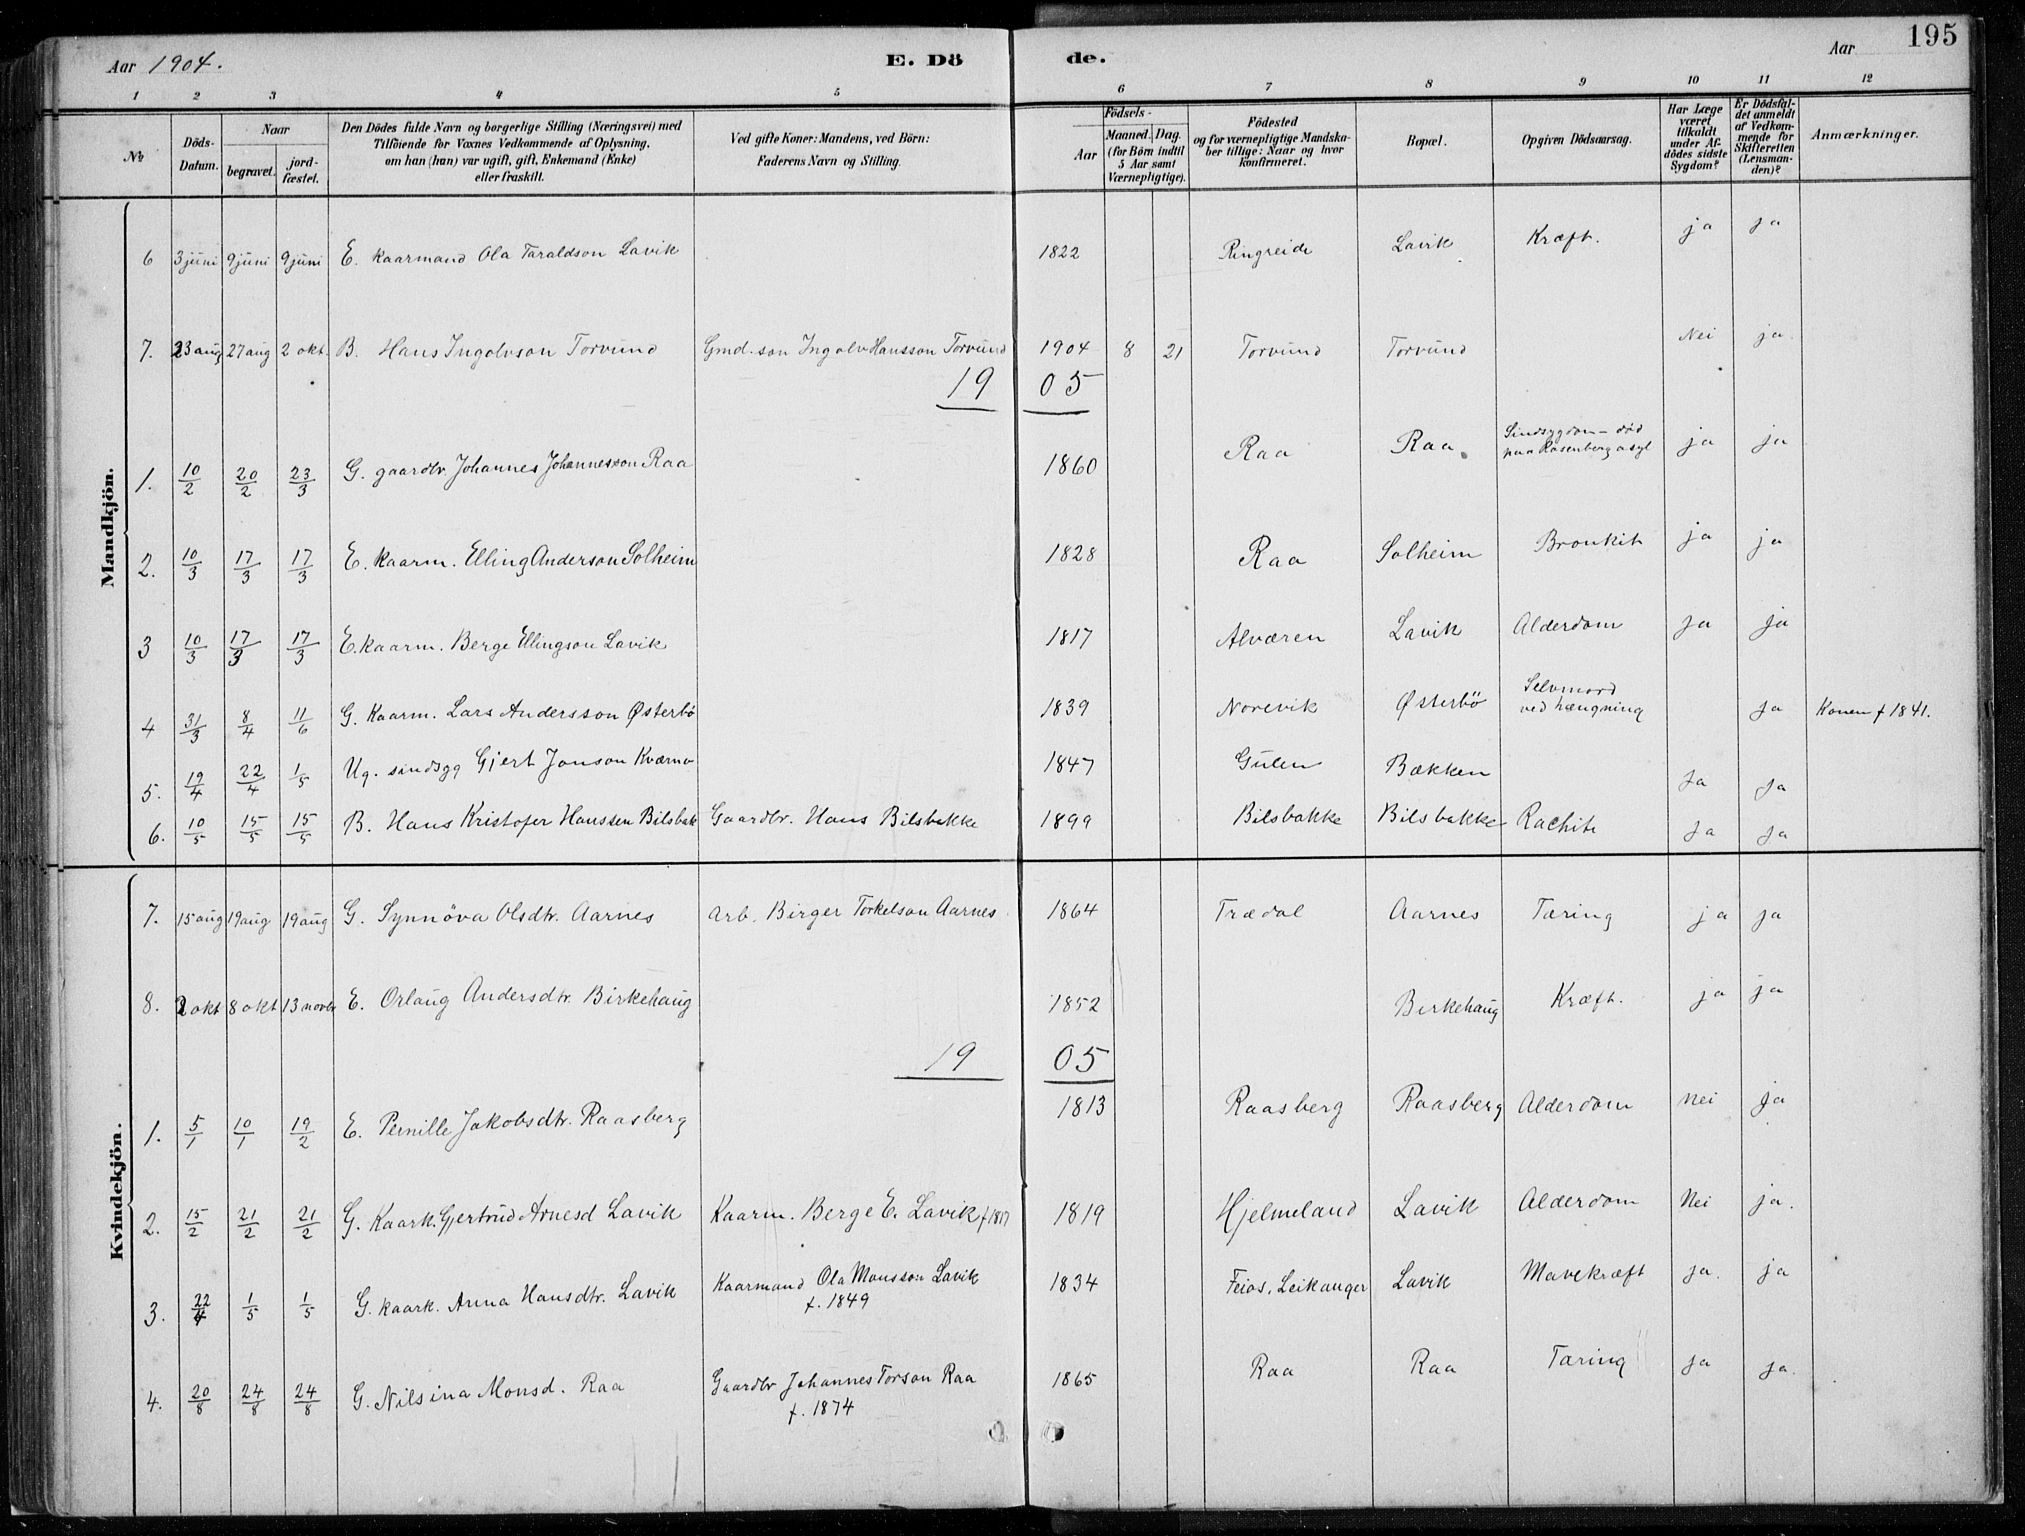 Aar 1904.
E. Dö
de.
Aar
195
1 2 3 4 5 6 7 8 9 10 11 12
No
Döds-Datum.
Naar
begravet.
jord-fæstet.
Den Dödes fulde Navn og borgerlige Stilling (Næringsvei) med
Tilföiende for Voxnes Vedkommende af Oplysning,
om han (hun) var ugift, gift, Enkemand (Enke)
eller fraskilt.
Ved gifte Koner: Mandens, ved Börn:
Faderens Navn og Stilling.
Födsels-
Aar
Maaned. Dag.
(for Börn indtil
5 Aar samt
Værnepligtige).
Födested
og for værnepligtige Mandska-
ber tillige: Naar og hvor
konfirmeret.
Bopæl.
Opgiven Dödsaarsag.
Har Læge
været
tilkaldt
under Af-
dödes sidste
Sygdom?
Er Dödsfal-
det anmeldt
af Vedkom-
mende for
Skifteretten
(Lensman-
den)?
Anmærkninger.
Mandkjön.
6 3 juni 9 juni 9 juni E. Kaarmand Ola Taraldson Lavik 1822 Ringreide Lavik Kræft. ja ja
7. 23 aug 27 aug 2 okt. B. Hans Ingolvson Torvund Gmd. son Ingolv Hansson Torvund 1904 8 21 Torvund Torvund Nei ja.
19 05
1. 10/2 20/2 23/3 G. gaardbr. Johannes Johannesson Raa 1860 Raa Raa Sindsygdom - död paa Rosenberg asyl ja ja
2. 10/3 17/3 17/3 E. Kaarm. Elling Anderson Solheim 1828 Raa Solheim Bronkit ja ja
3 10/3 17/3 17/3 E. kaarm. Berge Ellingson Lavik 1817 Alværen Lavik Alderdom ja ja
4 31/3 8/4 11/6 G. Kaarm. Lars Andersson Østerbö 1839 Norevik Østerbö Selvmord ved hængning ja Konen f 1841.
5. 19/4 22/4 1/5 Ug. sindsyg Gjert Jonson Kværno 1847 Gulen Bækken ja ja
6. 10/5 15/5 15/5 B. Hans Kristofer Hanssen Bilsbak Gaardbr. Hans Bilsbakke 1899 Bilsbakke Bilsbakke Rachit ja ja
Kvindekjön.
7. 15 aug 19 aug 19 aug G. Synnöva Olsdtr. Aarnes Arb. Birger Torkelson Aarnes 1864 Trædal Aarnes Tæring ja ja
8. 2 okt 8 okt 13 novbr E. Orlaug Andersdtr. Birkehaug 1852 Birkehaug Kræft. ja ja
19 05
1. 5/1 10/1 19/2 E. Pernille Jakobsdtr. Raasberg 1813 Raasberg Raasberg Alderdom nei ja
2. 15/2 21/2 21/2 G. Kaark. Gjertrud Arnesd Lavik Kaarm. Berge E. Lavik f 1817 1819 Hjelmeland Lavik Alderdom Nei ja.
3. 22/4 1/5 1/5 G. kaark. Anna Hansdtr. Lavik Kaarmand Ola Monsson Lavik f. 1849 1834 Feios, Leikanger Lavik Mavekræft ja. ja
4. 20/8 24/8 24/8 G. Nilsina Monsd. Raa Gaardbr Johannes Torson Raa f. 1874 1865 Raa Raa Tæring ja ja.